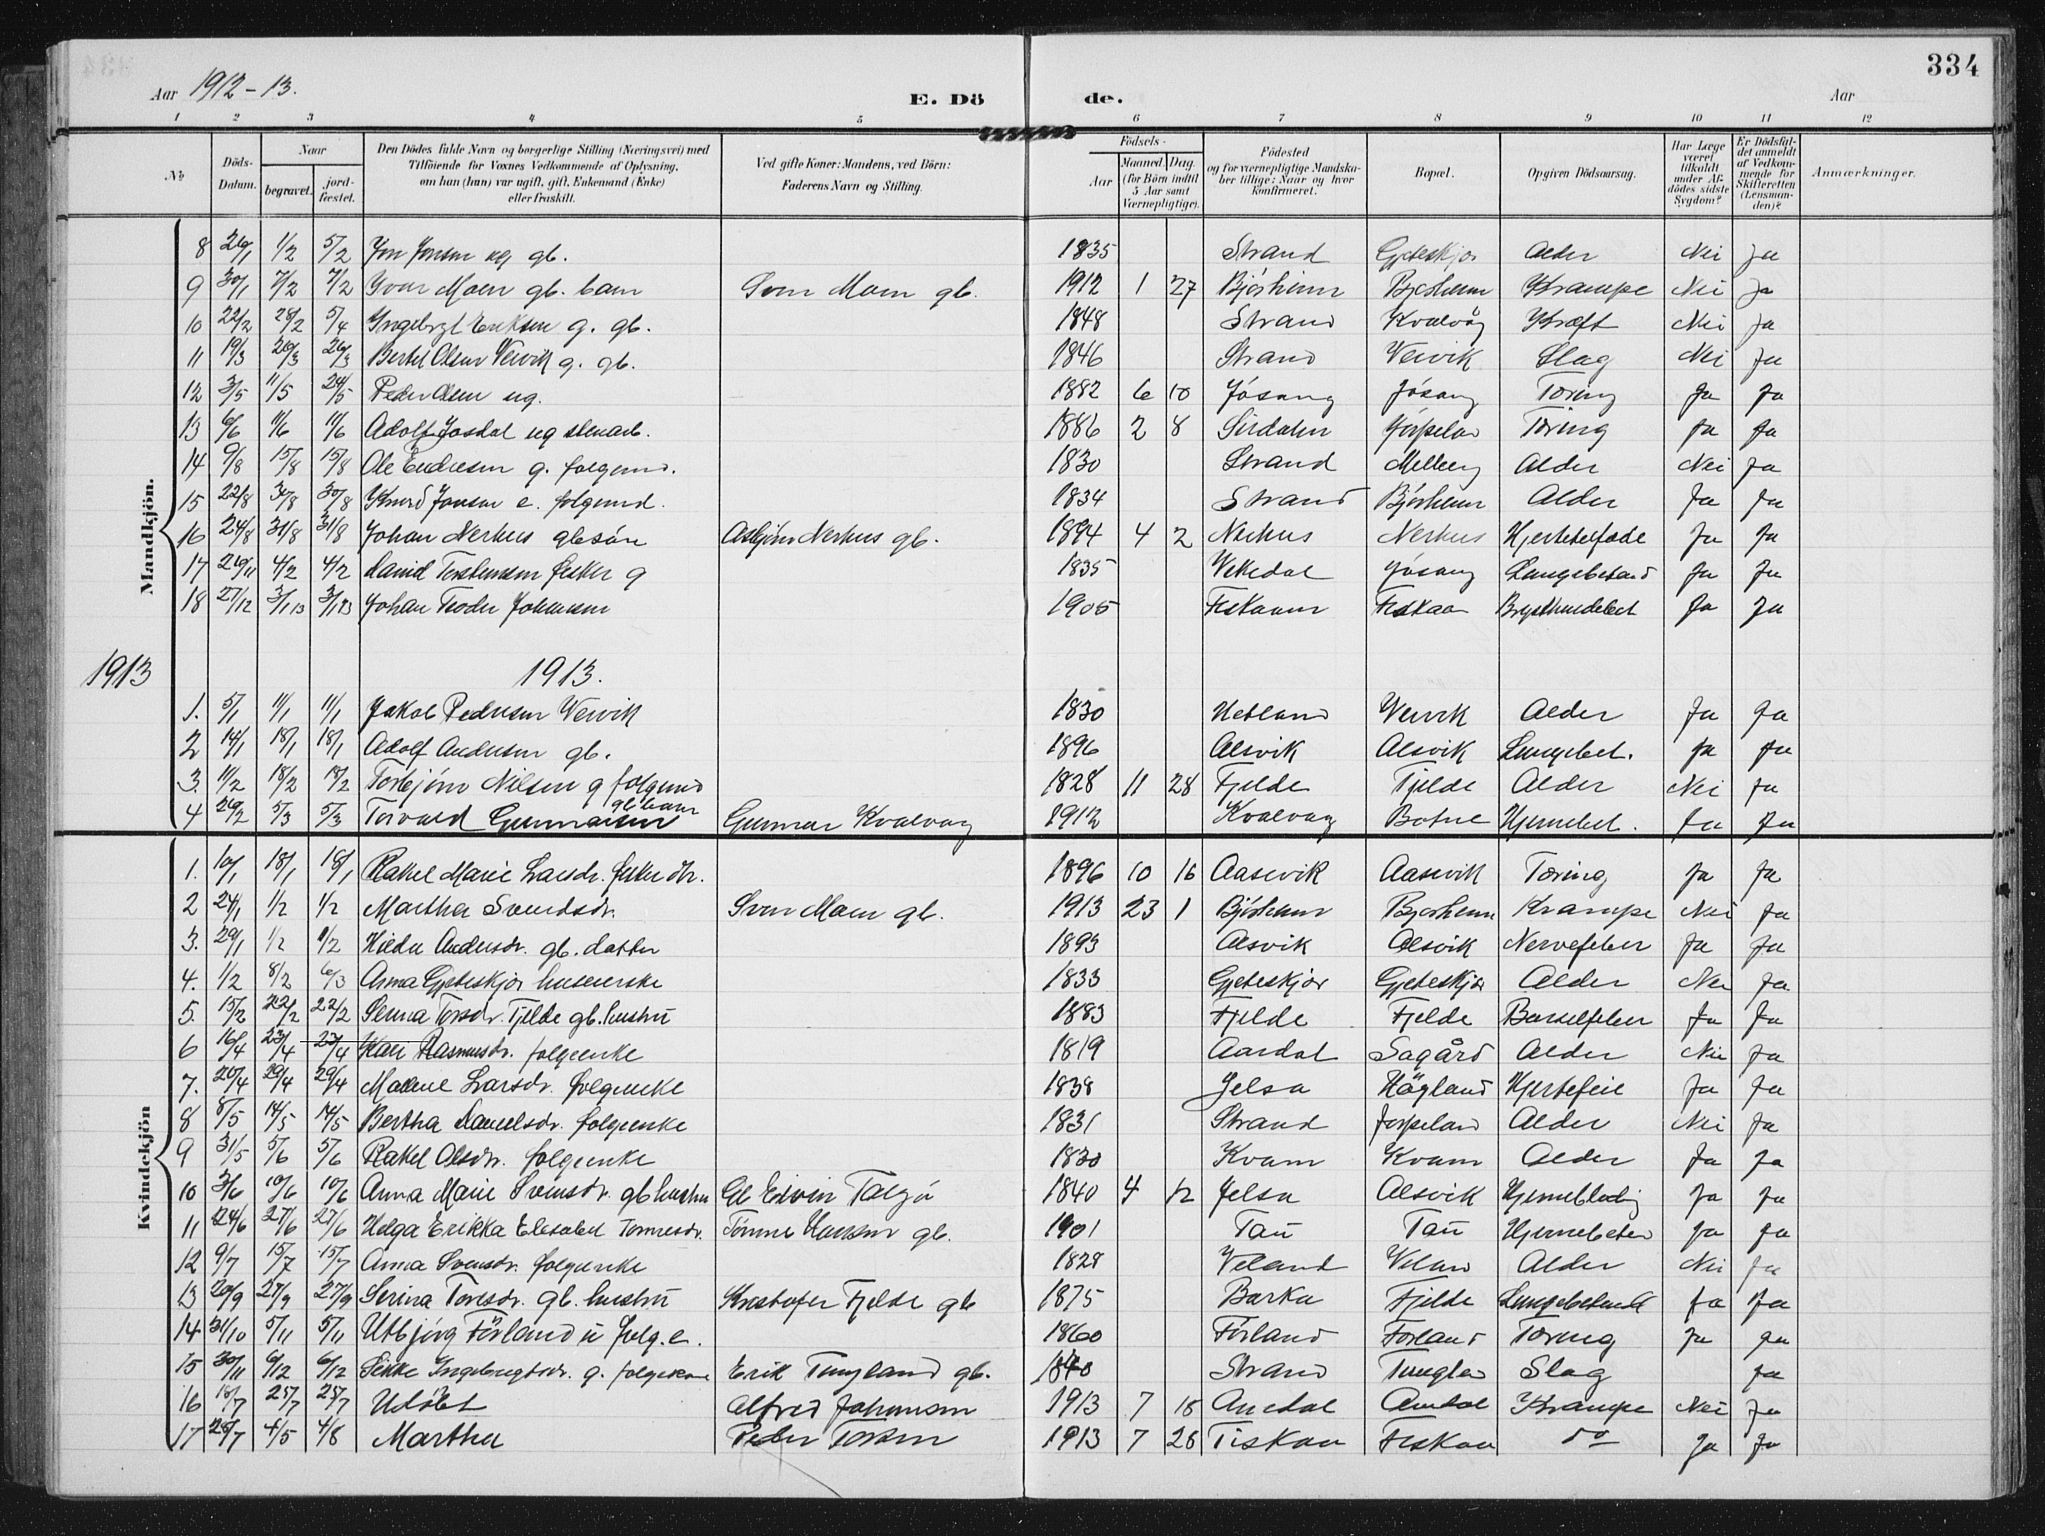 334
Aar 1912-13. E. Dö de. Aar
1 2 3 4 5 6 7 8 9 10 11 12
No Döds-Datum. Naar begravet. jord-fæstet. Den Dödes fulde Navn og borgerlige Stilling (Næringsvei) med Tilföiende for Voxnes Vedkommende af Oplysning, om han (hun) var ugift, gift, Enkemand (Enke) eller fraskilt. Ved gifte Koner: Mandens, ved Börn: Faderens Navn og Stilling. Födsels- Aar Maaned. Dag. (for Börn indtil 5 Aar samt Værnepligtige). Födested og for værnepligtige Mandskaber tillige: Naar og hvor Konfirmeret. Bopæl. Opgiven Dödsaarsag. Har Læge været tilkaldt under Afdödes sidste Sygdom? Er Dödsfaldet anmeldt af Vedkommende for Skifteretten (Lensmanden)? Anmærkninger.
Mandkjön.
8 26/1 1/2 5/2 Jon Jonsen ug gb. 1835 Strand Gjeteskjer Alder Nei Ja
9 30/1 7/2 7/2 Ivar Moen gb. barn Sven Moen gb. 1912 1 27 Bjørheim Bjørheim Krampe Nei Ja
10 22/2 28/2 5/4 Eriksen g. gb. 1848 Strand Kvalvåg Kræft Nei Ja
11 19/3 26/3 26/3 Bertel Olsen Vervik g. gb. 1846 Strand Vervik Slag Nei Ja
12 3/5 11/5 24/5 Peder Olsen ug. 1882 6 10 Jøsang Jøsang Tæring Ja Ja
13 6/6 11/6 11/6 Adolf Josdal ug stenarb. 1886 2 8 Sirdalen Jørpeland Tæring Ja Ja
14 9/8 15/8 15/8 Ole Endresen g. folgemd. 1830 Strand Melberg Alder Nei Ja
15 22/8 30/8 30/8 Knud Jonsen e. folgemd. 1834 Strand Bjørheim Alder Ja Ja
16 24/8 31/8 31/8 Johan Nerhus gbsøn Asbjørn Nerhus gb. 1894 4 2 Nerhus Nerhus Ja Ja
17 26/11 4/2 4/2 Daniel fisker g 1835 Vikedal Jøsang Lungebetænd Ja Ja
18 27/12 3/1 13 3/1 13 Johan Teodor Johansen 1905 Fiskaaen Fiskaa Ja Ja
1913 1913.
1. 5/1 11/1 11/1 Jakob Pedersen Vervik 1830 Hetland Vervik Alder Ja Ja
2 14/1 18/1 18/1 Adolf Andersen gb. 1896 Alsvik Alsvik Lungebet. Ja Ja
3. 11/2 18/2 18/2 Torbjørn Nilsen g folgemd 1828 11 28 Fjelde Fjelde Alder Nei Ja
4 26/2 5/3 5/3 Torvald Gunnarsen gb barn Gunnar Kvalvaag 1912 Kvalvaag Botne Hjernebet. Ja Ja
Kvindekjön
1. 10/1 18/1 18/1 Rakel Marie Larsdr. fisker dtr. 1896 10 16 Aasevik Aasevik Tæring Ja Ja
2 24/1 1/2 1/2 Martha Svendsdr. Sven Moen gb. 1913 23 1 Bjørheim Bjørheim Krampe Nei Ja
3. 29/1 1/2 1/2 Hilda Andersdr. gb. datter 1893 Alsvik Alsvik Nervefeber Ja Ja
4. 1/2 8/2 6/3 Anna Gjeteskjer 1833 Gjeteskjer Gjeteskjer Alder Nei Ja
5. 15/2 22/2 22/2 Serina Torsdr. Fjelde gb. hustru 1883 Fjelde Fjelde Barselfeber Ja Ja
6 16/4 23/4 23/4 Kari Rasmusdr. folgeenke 1819 Aardal Sagård Alder Nei Ja
7. 20/4 29/4 29/4 Malene Larsdr. folgeenke 1838 Jelsa Högland Hjertefeil Ja Ja
8 8/5 14/5 14/5 Bertha Danielsdr. folgeenke 1831 Strand Jørpeland Alder Nei Ja
9 31/5 5/6 5/6 Rakel Olsdr. folgeenke 1830 Kvam Kvam Alder Ja Ja
10 3/6 10/6 10/6 Anna Marie Svensdr. gb hustru Gb Edvin Talgø 1840 4 12 Jelsa Alsvik Hjerneblødg Ja Ja
11 24/6 27/6 27/6 Helga Erikka Elisabet Tønnesdr. Tönnes Hansen gb. 1901 Tau Tau Hjernebeten Ja Ja
12 9/7 15/7 15/7 Anna Svensdr. folgeenke 1828 Veland Veland Alder Nei Ja
13 20/9 27/9 27/9 Serina Toresdr. gb. hustru Kristofer Fjelde gb 1875 Barka Fjelde Lungebetænd Ja Ja
14 31/10 5/11 5/11 Utbjørg Förland u folg.e. 1860 Förland Förland Tæring Ja Ja
15 30/11 6/12 6/12 Sikke Ingebrigtsdr. g. folgekone Erik Tungland gb. 1840 Strand Tungland Slag Ja
16 18/7 25/7 25/7 Udöbt Alfred Johansen 1913 7 18 Aardal Aardal Krampe Nei Ja
17 28/7 4/5 4/8 Martha Peder Torsen 1913 7 26 Fiskaa Fiskaa do Ja Ja